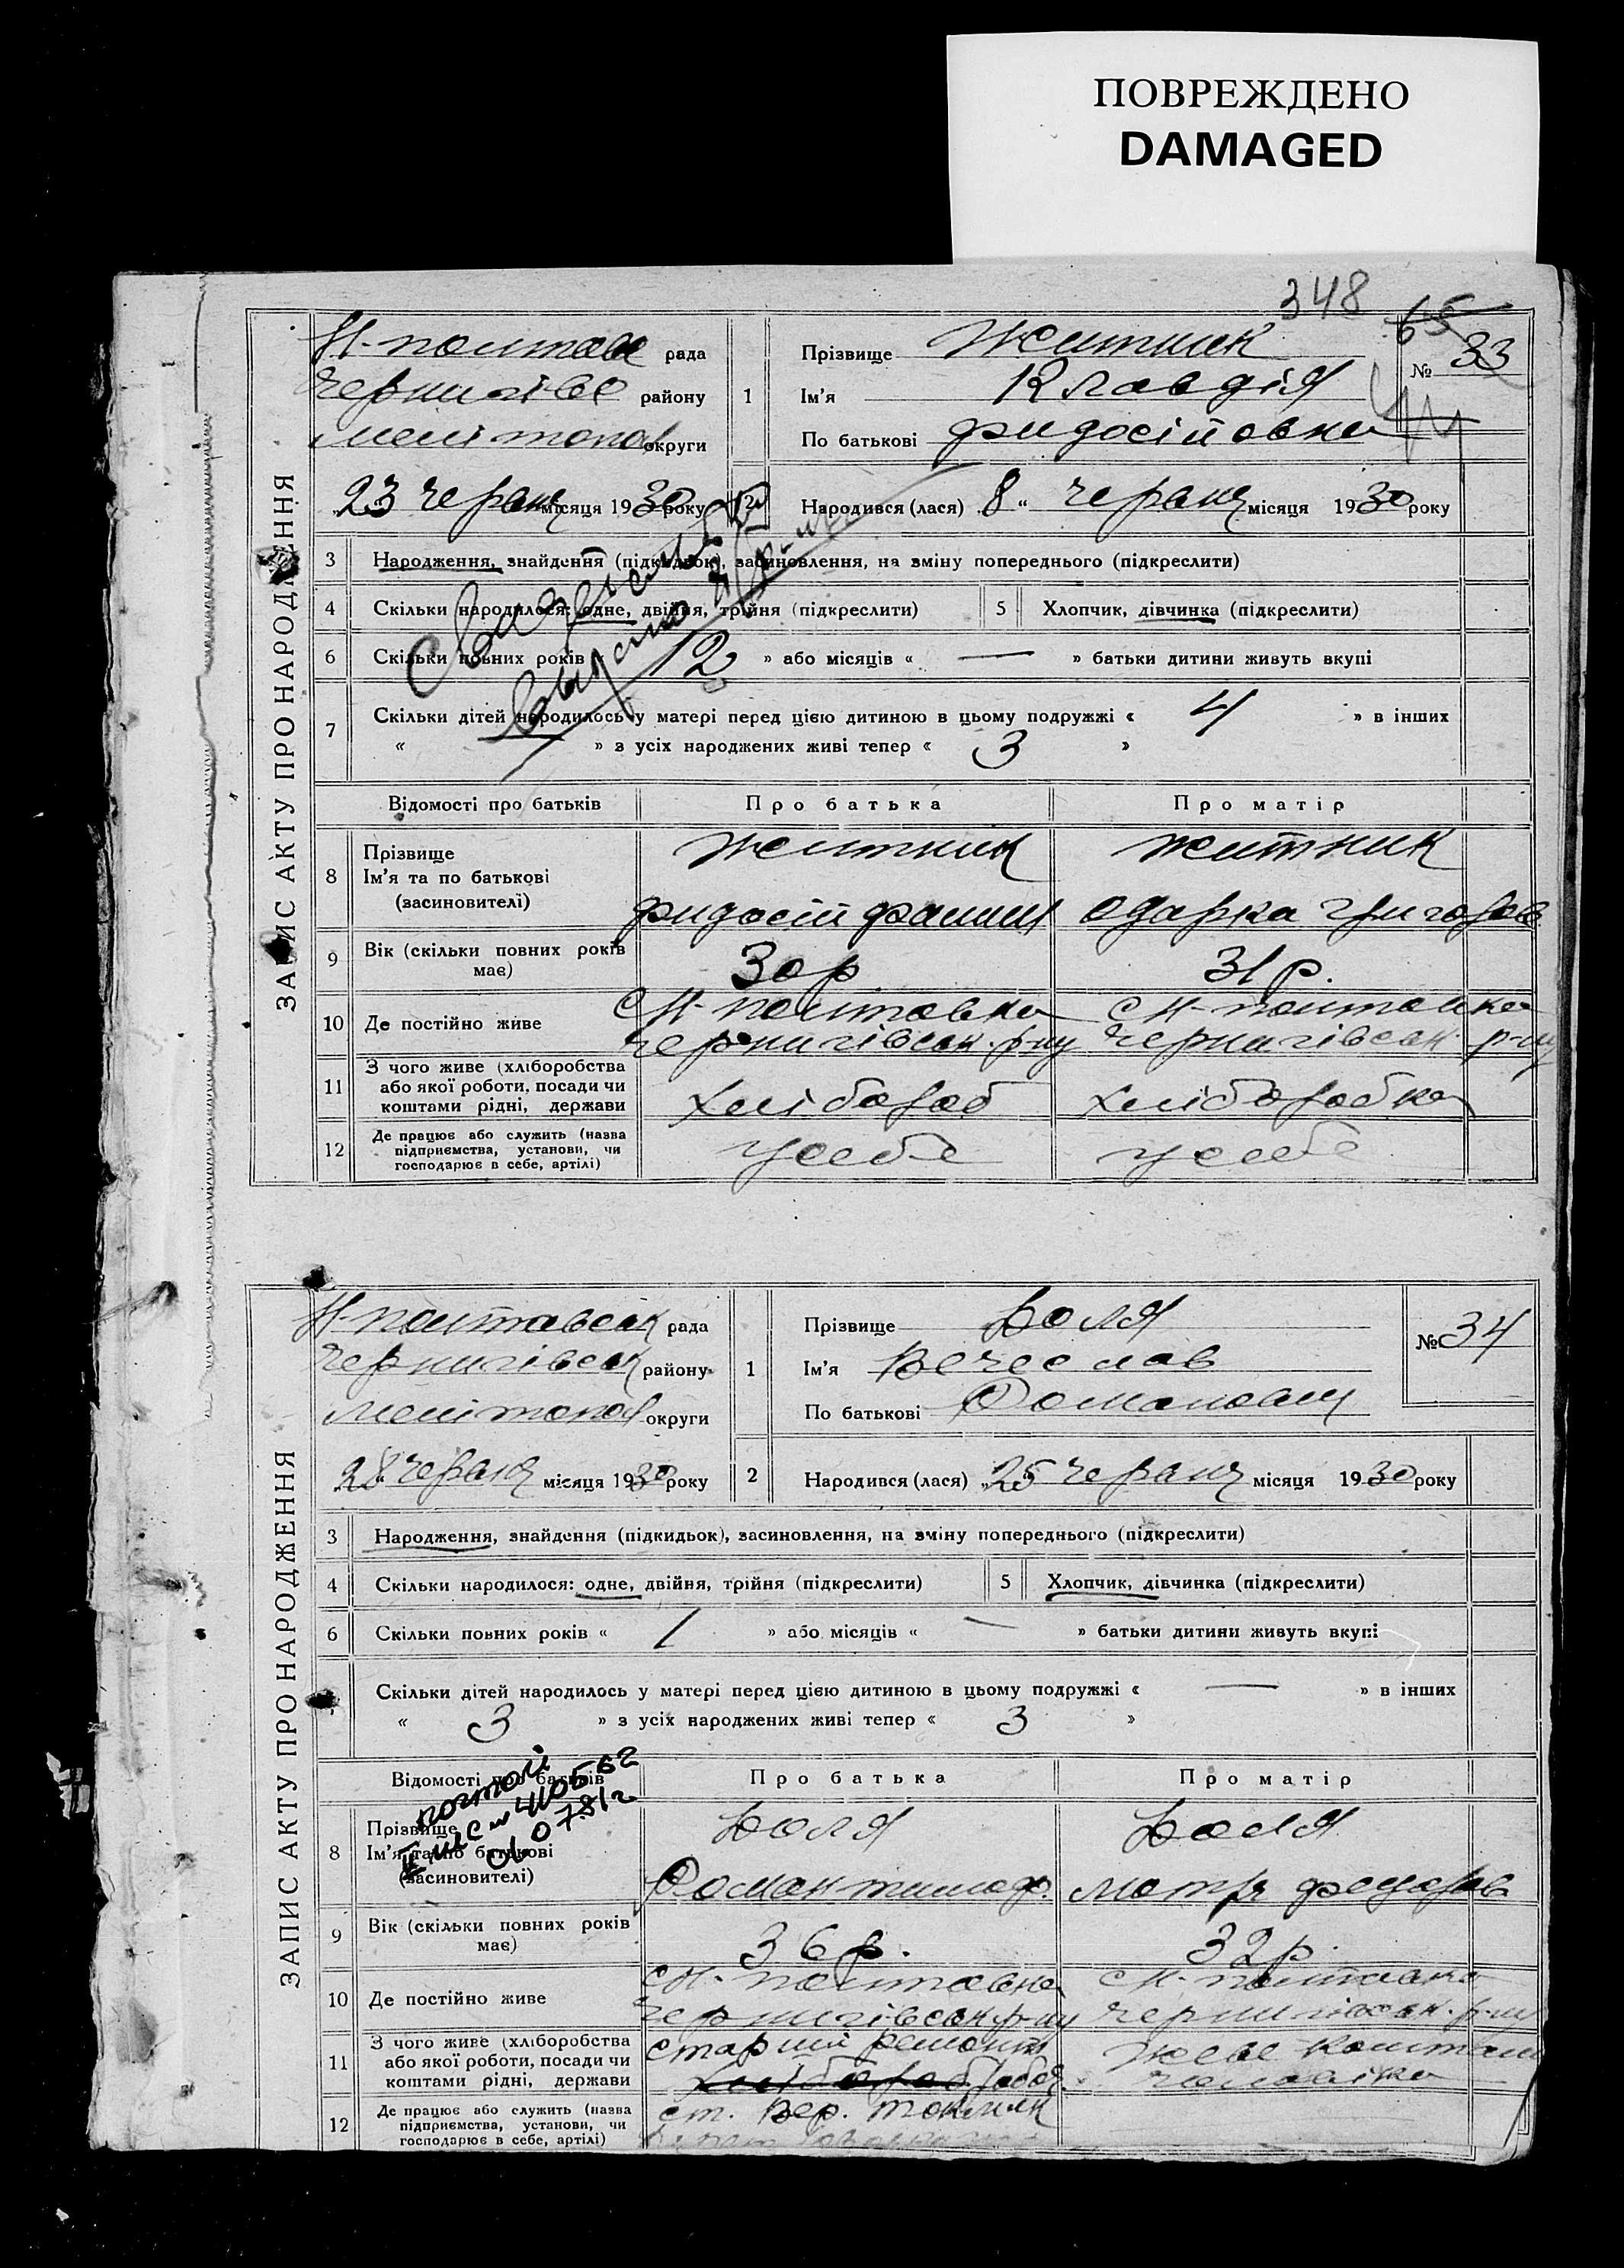 ПОВРЕЖДЕНО
DAMAGED
348
65
ЗАПИС АКТУ ПРО НАРОДЖЕННЯ
Н-полтавс рада
Чернигівс району
Мелітопол округи
23 червня місяця 1930 року
1 Прізвище Житник
Ім'я Клавдія
По батькові Фидосійовна
№ 33
2 Народився (лася) 8 " червня місяця 1930 року
3 Народження, знайдення (підкидьок), засиновлення, на зміну попереднього (підкреслити)
4 Скільки народилося: одне, двійня, трійня (підкреслити) 5 Хлопчик, дівчинка (підкреслити)
6 Скільки повних років 12 » або місяців « — » батьки дитини живуть вкупі
7 Скільки дітей народилось у матері перед цією дитиною в цьому подружжі « 4 » в інших
« » з усіх народжених живі тепер « 3 »
Відомості про батьків Про батька Про матір
8 Прізвище Житник Житник
Ім'я та по батькові
(засновителі) Фидосій Одарка Григоров
9 Вік (скільки повних років має) 30 р 31 р.
10 Де постійно живе с Н-Полтавка с Н-Полтавка
Чернигівськ. р-ну Чернигівськ. р-ну
11 З чого живе (хліборобства або якої роботи, посади чи коштами рідні, держави Хлібороб Хліборобка
12 Де працює або служить (назва підприємства, установи, чи господарює в себе, артілі) у себе у себе
ЗАПИС АКТУ ПРО НАРОДЖЕННЯ
Н-полтавськ рада
Чернигівськ району
Мелітопол округи
28 червня місяця 1930 року
1 Прізвище Боля
Ім'я Вечеслав
По батькові Романович
№ 34
2 Народився (лася) „25 червня місяця 1930 року
3 Народження, знайдення (підкидьок), засиновлення, на зміну попереднього (підкреслити)
4 Скільки народилося: одне, двійня, трійня (підкреслити) 5 Хлопчик, дівчинка (підкреслити)
6 Скільки повних років « 1 » або місяців « — » батьки дитини живуть вкупі
Скільки дітей народилось у матері перед цією дитиною в цьому подружжі « — » в інших
« 3 » з усіх народжених живі тепер « 3 »
Відомості про батьків Про батька Про матір
8 Прізвище Боля Боля
Ім'я та по батькові
(засиновителі) Роман Тимоф. Мотря Федоров
9 Вік (скільки повних років має) 36 р. 32 р.
10 Де постійно живе с Н-Полтавка с Н-Полтавка
Чернигівськ р-ну Чернигівськ. р-ну
11 З чого живе (хліборобства або якої роботи, посади чи коштами рідні, держави старший ремонтн хлібороб робоч. живе коштам чоловіка
12 Де працює або служить (назва підприємства, установи, чи господарює в себе, артілі) ст. Вер. Токмак